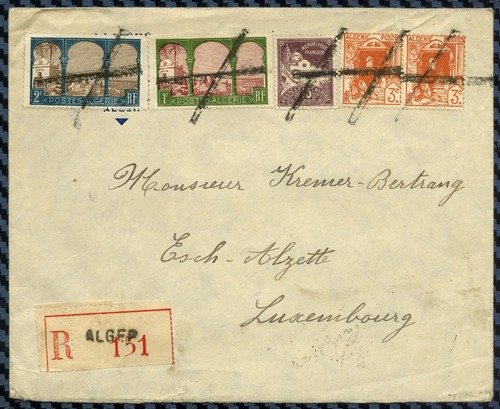 2F POSTES-ALGERIE RF
1F POSTES-ALGERIE RF
REPUBLIQUE FRANÇAISE
ALGERIE POSTES 3c
ALGERIE POSTES 3c
Monsieur Kremer-Bertrang
Esch-Alzette
Luxembourg
R ALGER 151